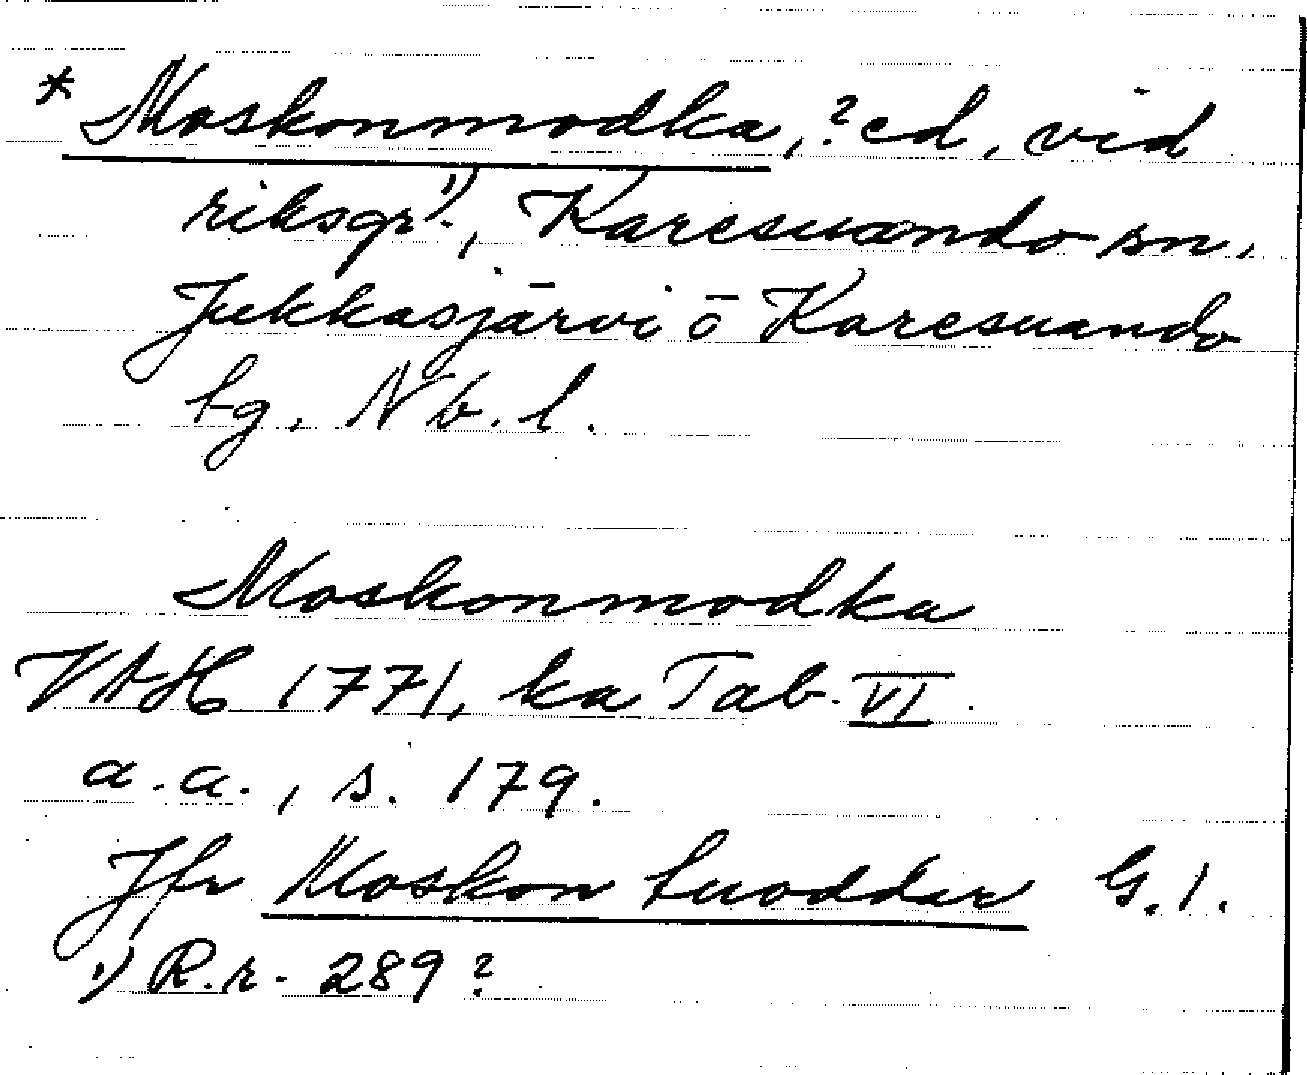 * Moskonmodka, ? ed, vid
riksgr¹⁾., Karesuando sn,
Jukkasjärvi o Karesuando
tg. Nb. l.
Moskonmodka
VAH 1771, ka Tab. VI.
a.a., s. 179.
Jfr Moskon tuoddar G. 1.
¹⁾ R.r. 289 ?